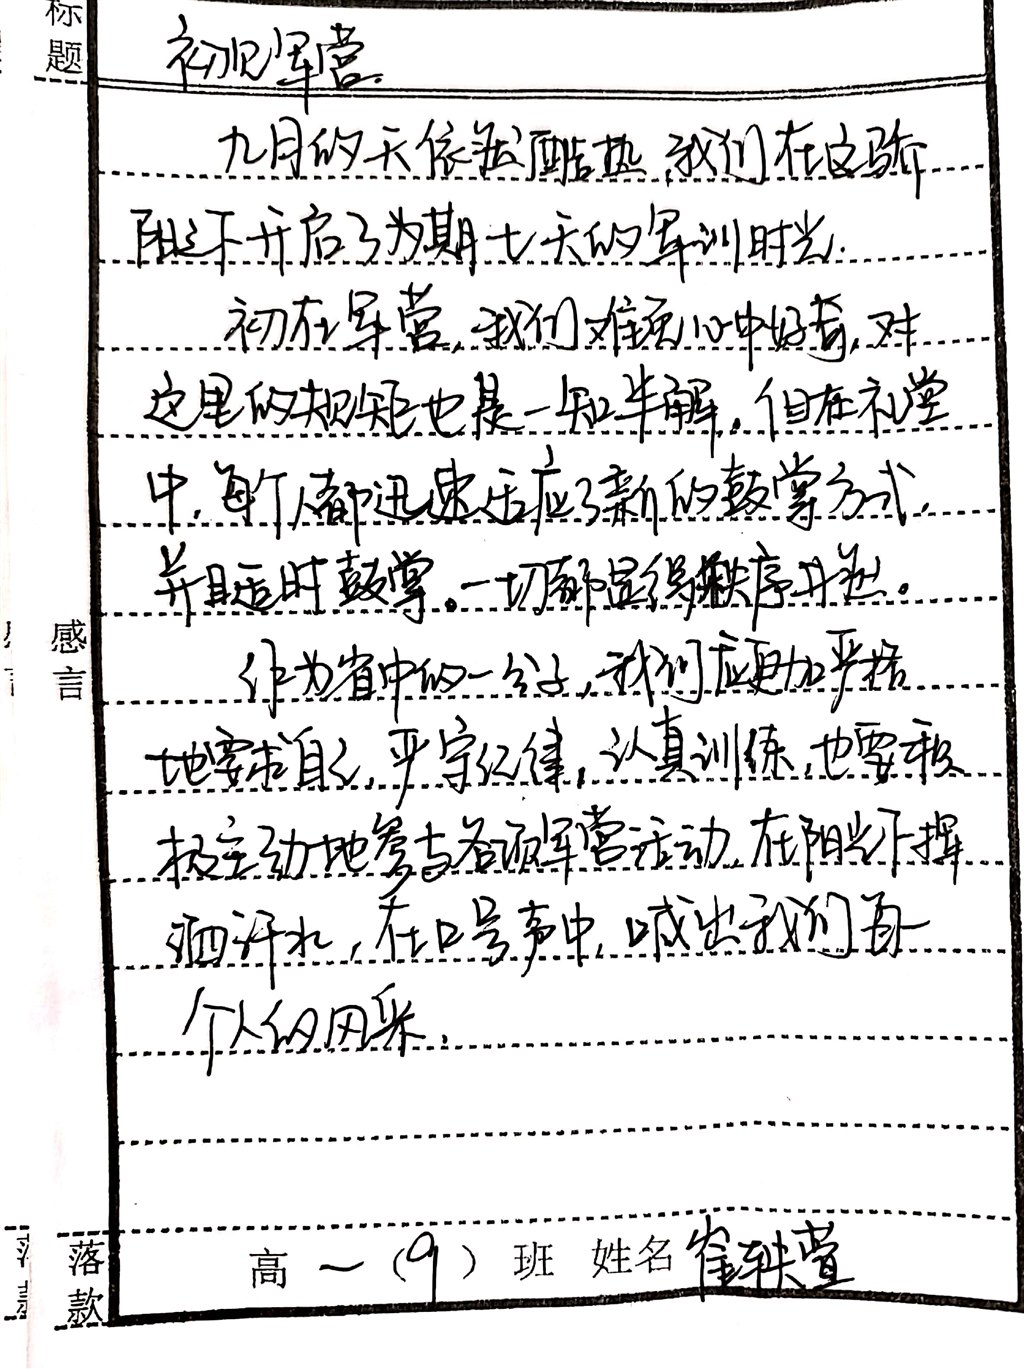 标题
初见军营.
九月的天依然酷热,我们在这骄
阳之下开启了为期七天的军训时光.
初在军营,我们难免心中好奇,对
这里的规矩也是一知半解。但在礼堂
中,每个人都迅速适应了新的鼓掌方式,
并且适时鼓掌。一切都显得秩序井然。
感言
作为省中的一分子,我们应更加严格
地要求自己,严守纪律,认真训练,也要积
极主动地参与各项军营活动.在阳光下挥
洒汗水,在口号声中,喊出我们每一
个人的风采.
落款
高一(9)班 姓名崔轶萱